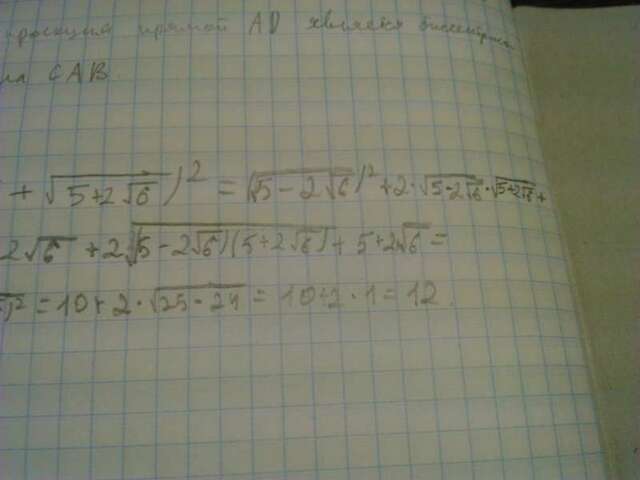 проекция прямой AD является биссектриса
на CAB.
+ √(5+2√6))² = (√(5-2√6))² + 2·√(5-2√6)·√(5+2√6) +
2√6 + 2√((5-2√6)(5+2√6)) + 5+2√6 =
)² = 10 + 2·√(25-24) = 10+2·1 = 12.